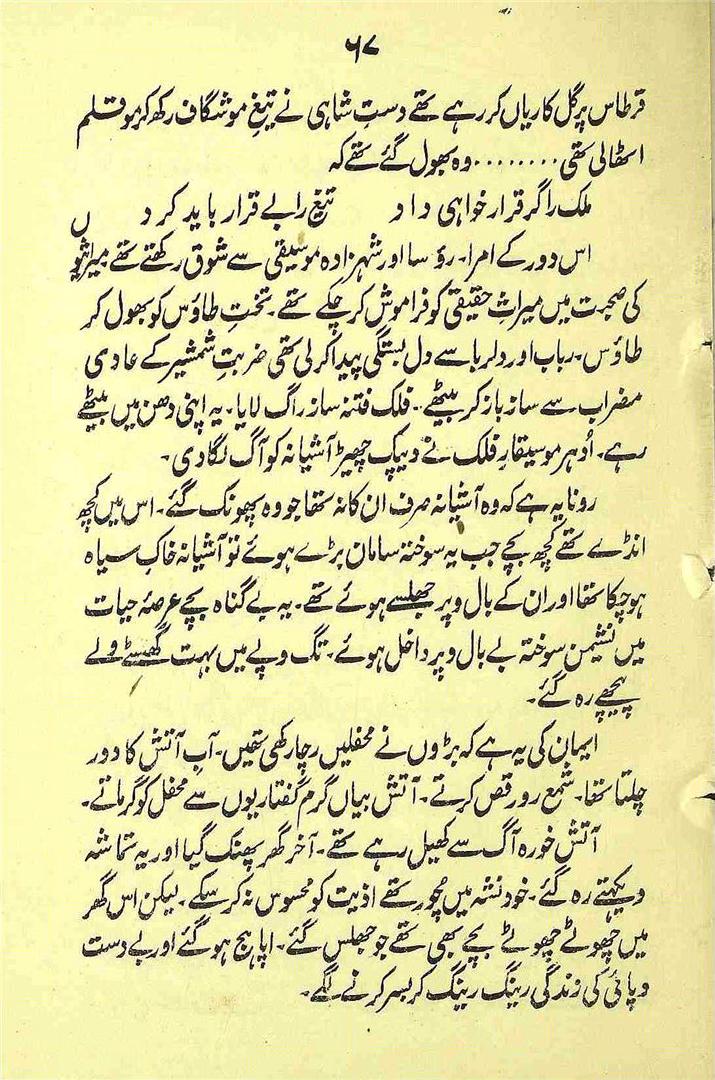 ۶۷
قرطاس پر گل کاریاں کر رہے تھے دستِ شاہی نے تیغِ موشگاف رکھ کر موقلم
اٹھالی تھی ........ وہ بھول گئے تھے کہ
ملک را گر قرار خواہی داد تیغ را بے قرار باید کرد
اس دور کے امرا۔ رؤسا اور شہزادہ موسیقی سے شوق رکھتے تھے میراثیوں
کی صحبت میں میراثِ حقیقی کو فراموش کر چکے تھے۔ تختِ طاؤس کو بھول کر
طاؤس۔ رباب اور دلربا سے دل بستگی پیدا کر لی تھی ضربتِ شمشیر کے عادی
مضراب سے ساز باز کر بیٹھے۔ فلک فتنہ ساز راگ لایا۔ یہ اپنی دھن میں بیٹھے
رہے۔ اُدہر موسیقارِ فلک نے دیپک چھیڑ آشیانہ کو آگ لگا دی۔
رونا یہ ہے کہ وہ آشیانہ صرف ان کا نہ تھا جو وہ پھونک گئے۔ اس میں کچھ
انڈے تھے کچھ بچے جب یہ سوختہ سامان بڑے ہوئے تو آشیانہ خاکِ سیاہ
ہوچکا تھا اور ان کے بال و پر جھلسے ہوئے تھے۔ یہ بے گناہ بچے عرصۂ حیات
میں نشیمن سوختہ بے بال و پر داخل ہوئے۔ تگ وپے میں بہت گھسٹے ولے
پیچھے رہ گئے۔
ایمان کی یہ ہے کہ بڑوں نے محفلیں رچا رکھی تھیں۔ آبِ آتش کا دور
چلتا تھا۔ شمع رو رقص کرتے۔ آتش بیاں گرم گفتاریوں سے محفل کو گرماتے۔
آتش خورہ آگ سے کھیل رہے تھے۔ آخر گھر پھنک گیا اور یہ تماشہ
دیکھتے رہ گئے۔ خود نشہ میں چُور تھے اذیت کو محسوس نہ کر سکے۔ لیکن اس گھر
میں چھوٹے چھوٹے بچے بھی تھے جو جھلس گئے۔ اپاہج ہو گئے اور بے دست
و پائی کی زندگی رینگ رینگ کر بسر کرنے لگے۔